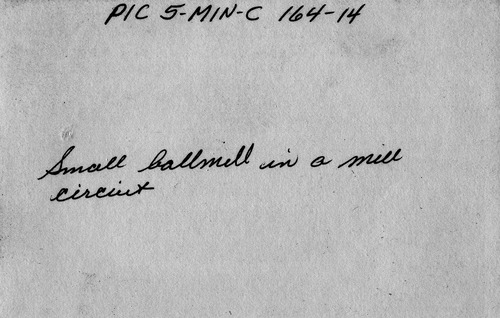 PIC 5-MIN-C 164-14
Small ballmill in a mill
circiut